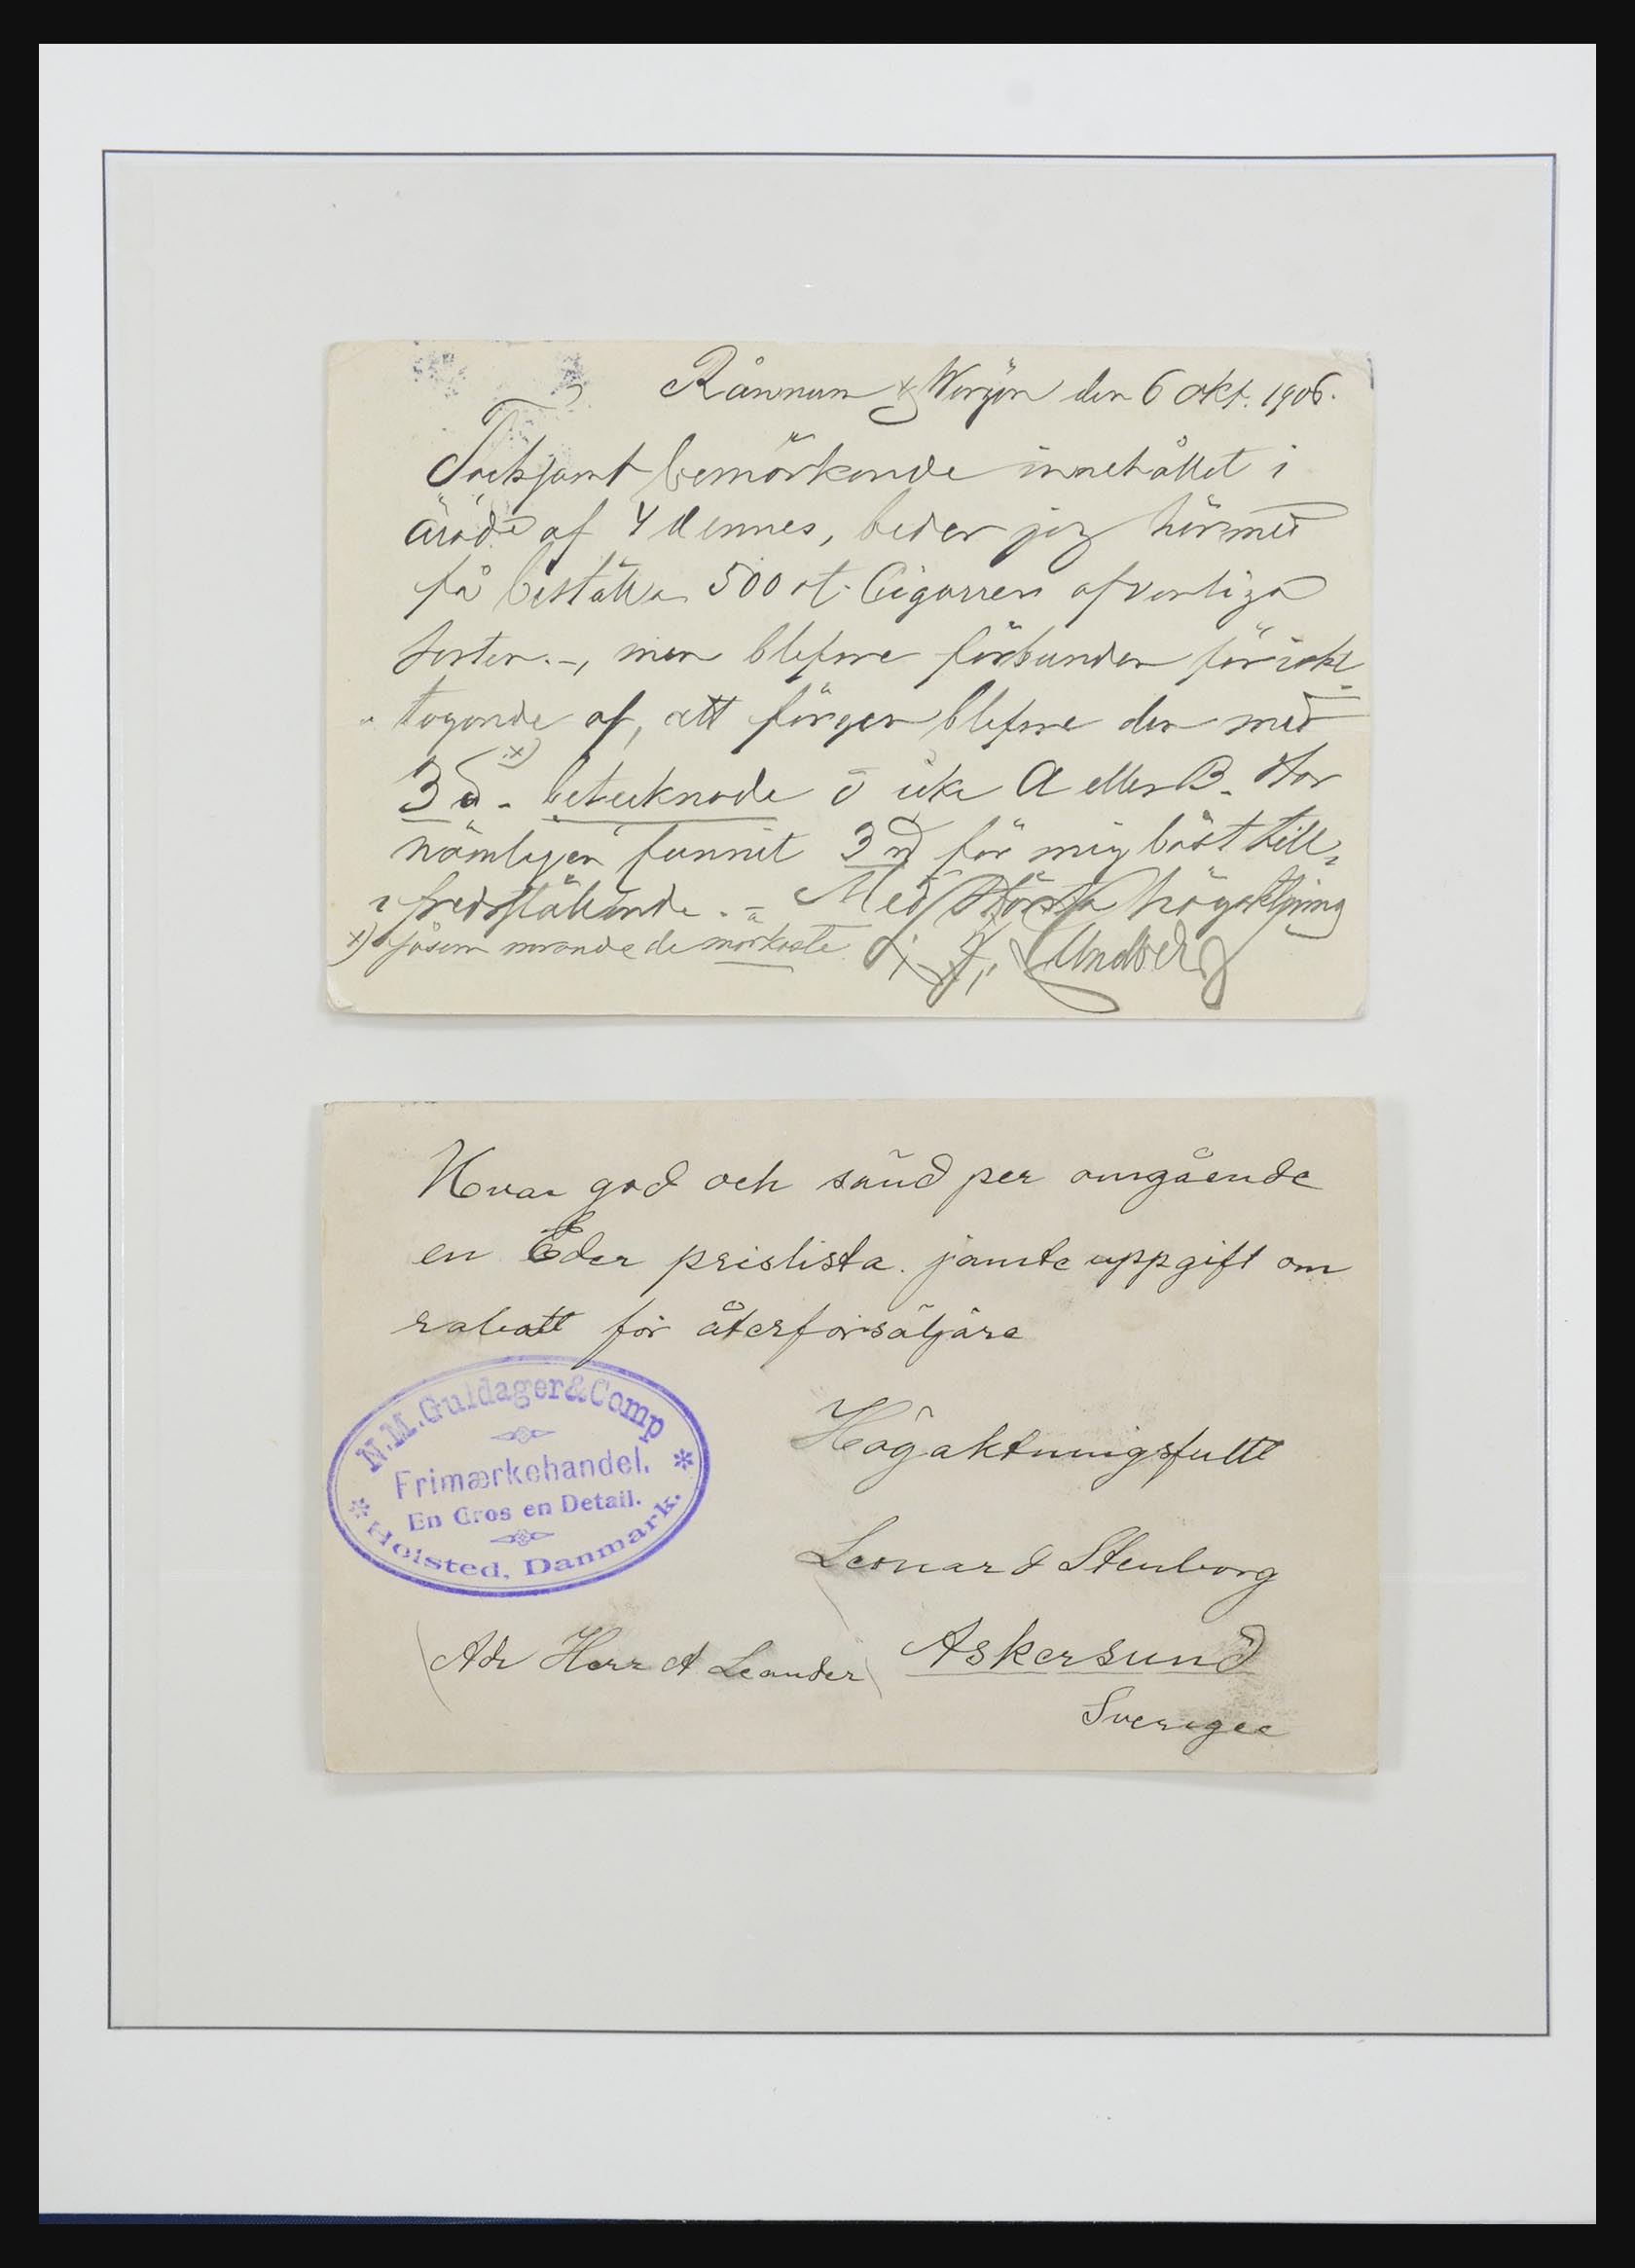 Rånnum den 6 okt. 1906.
Tacksamt bemärkande innehållet i
ärade af 4 dennes, beder jag härmed
få beställa 500 st. Cigarrer af vanliga
sorten.-, men blefve förbunden för iakt-
tagande af, att färgen blefve den med
3 d x) - betecknade o icke A eller B. Har
nämligen funnit 3 d för mig bäst till-
fredsställande. - Med största högaktning
x) såsom varande de mörkaste Lundberg
Hvar god och sänd per omgående
en Eder prislista. jämte uppgift om
rabatt för återförsäljare
N.M.Guldager&Comp
Frimærkehandel.
En Gros en Detail.
Holsted, Danmark.
Högaktningsfullt
Leonard Stenborg
(Adr Herr A Leander) Askersund
Sverige